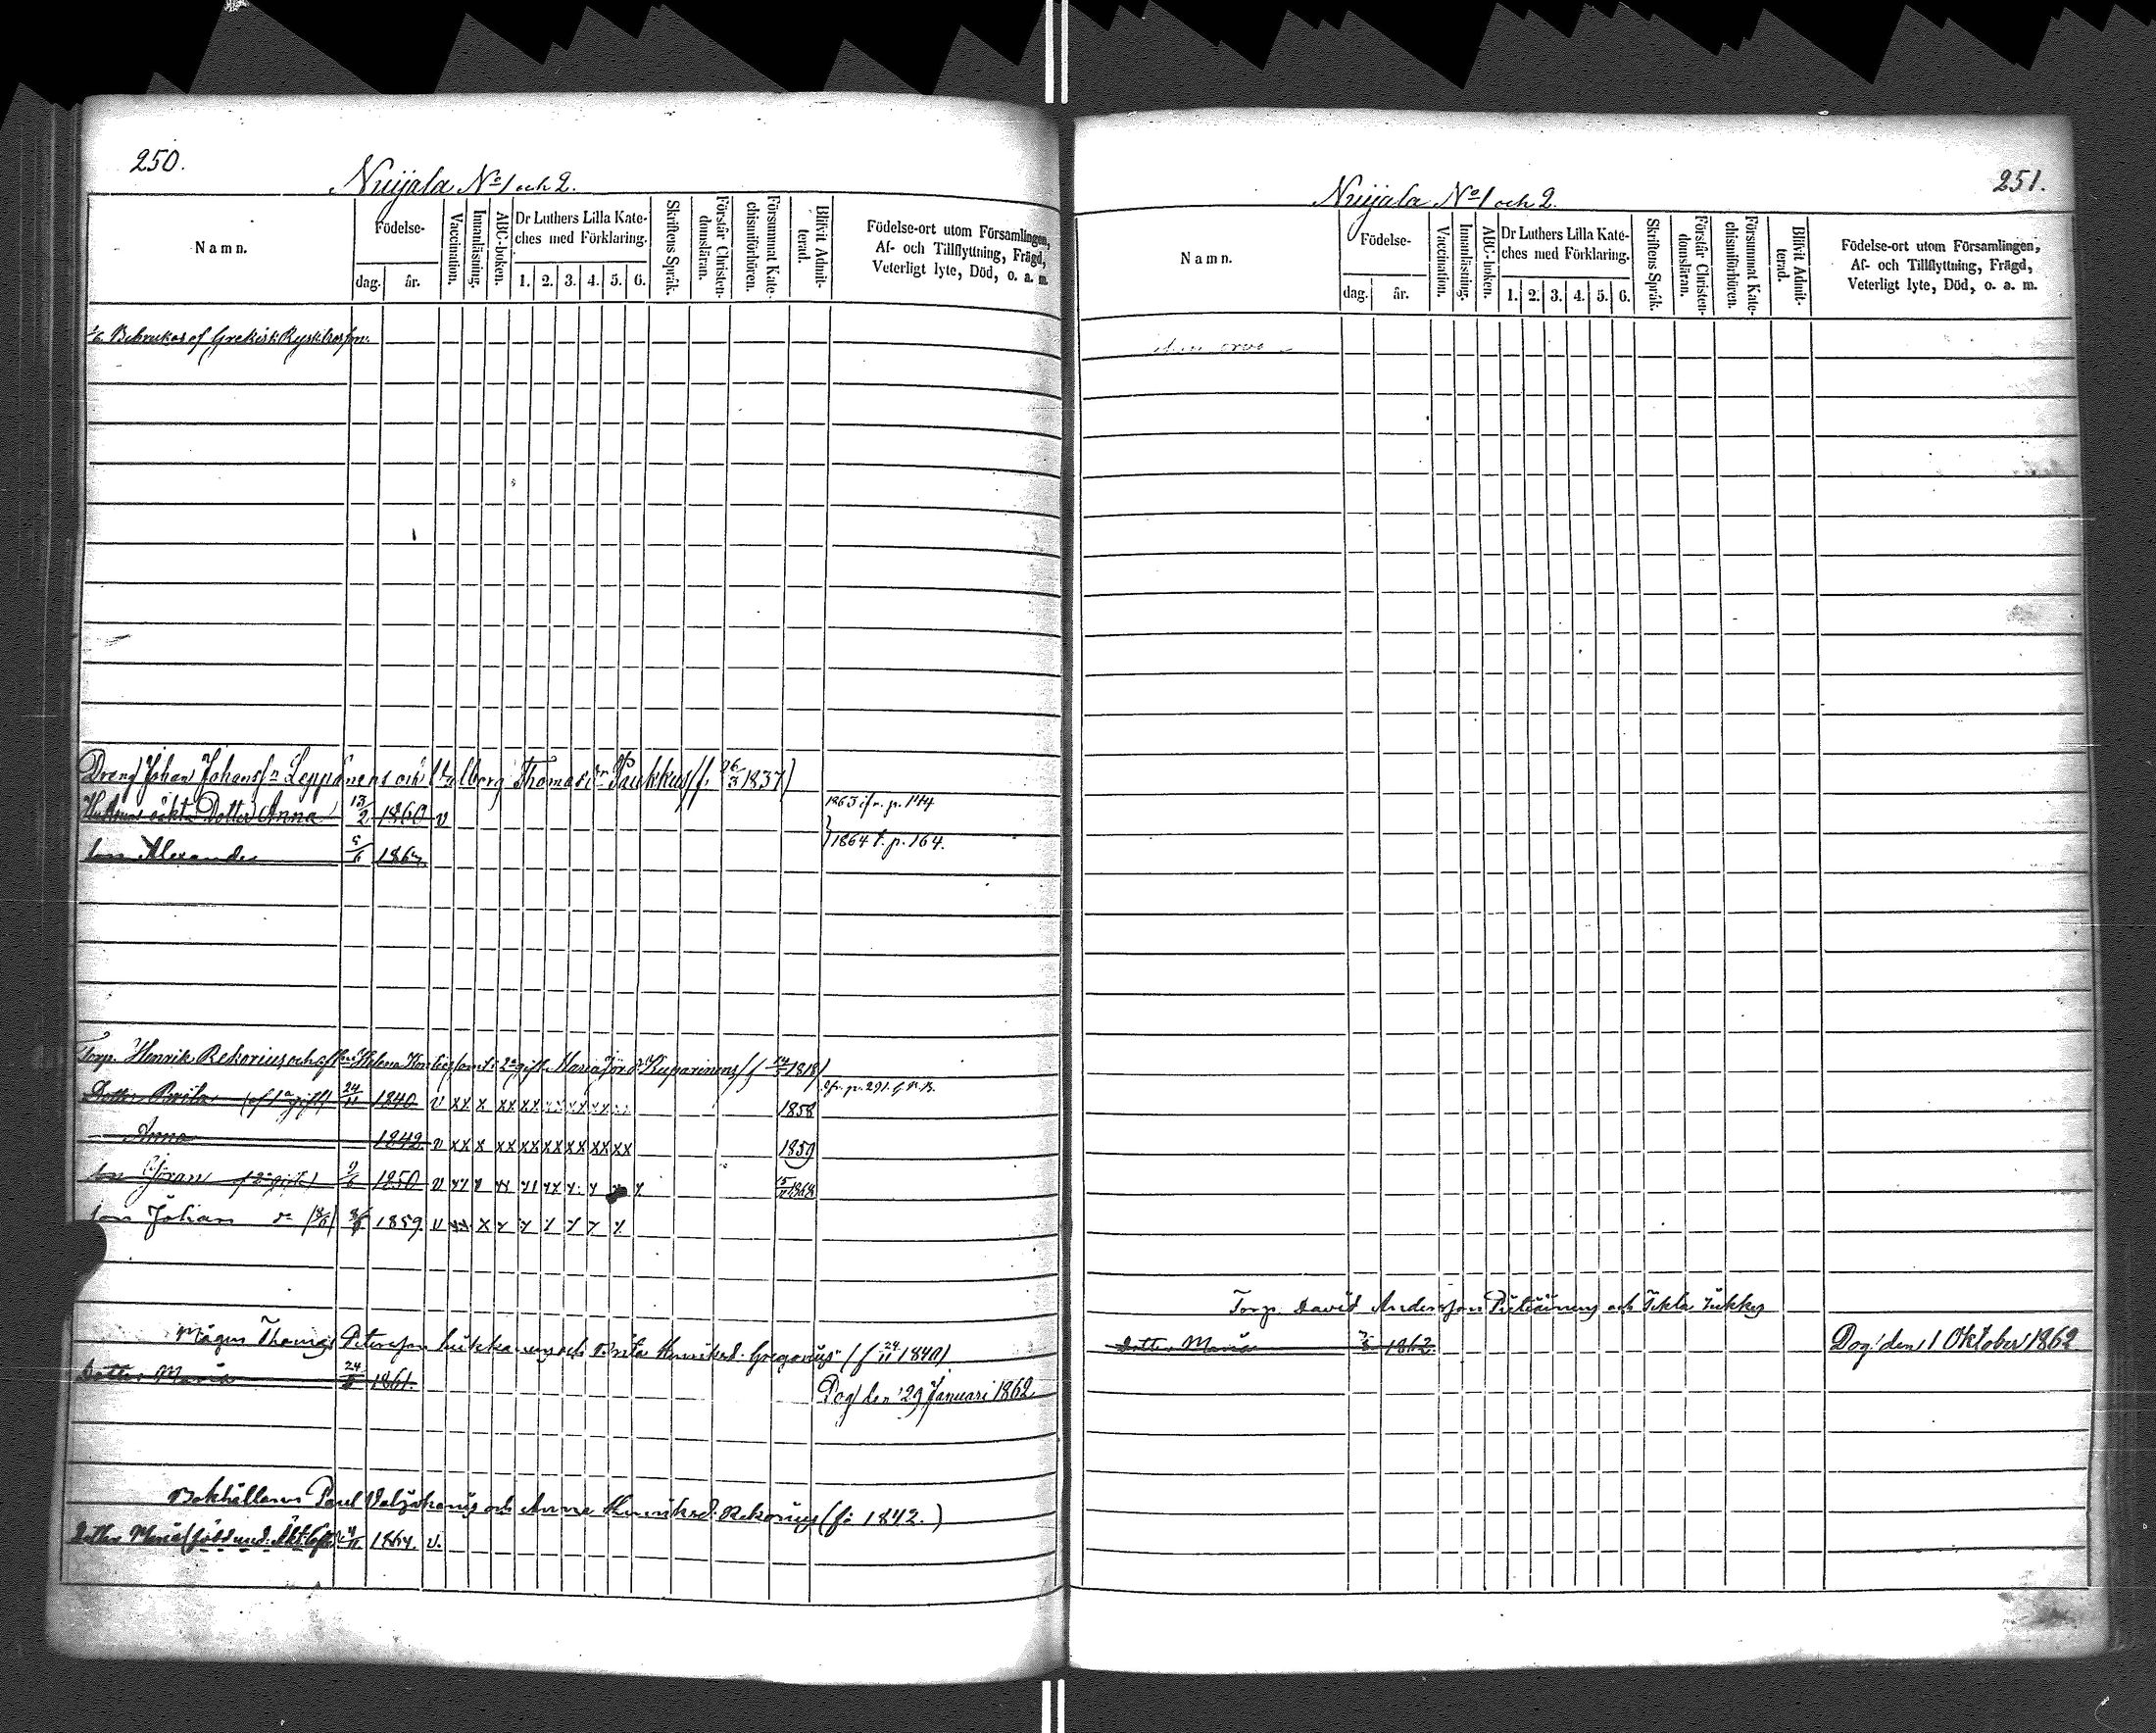 250.
Nuijala No 1 och 2.
Namn.
Födelse-
dag.
år.
Vaccination.
Innanläsning.
ABC-boken.
Dr Luthers Lilla Kate-
ches med Förklaring.
1. 2. 3. 4. 5. 6.
Skriftens Språk.
Förstår Christen-
domsläran.
Försummat Kate-
chismiförhören.
Blifvit Admit-
terad.
Födelse-ort utom Församlingen,
Af- och Tillflyttning, Frägd,
Veterligt lyte, Död, o. a. m.
Bebrukas af Grekisk Rysk
Dreng Johan Johansson Leppänens och Walborg Thomasdr Paukkus (f. 26/3 1837)
Dotter Anna 13/2 1860 v
p. 144
Son Alexander 1864 t. p. 164.
Torp. Henrik Rekorius och Helena i 2a gifte Maria Kuparinens 1818)
p. 291.
Dotter Brita (af 1a gifte) 24/11 1840 v xx x xx xx xx xx xx 1858
Anna 1842 v xx x xx xx xx xx xx xx 1859
Son Göran 1850 v
Son Johan 1859 v xx x x x x x x x
Mågen Thomas Petersson och Brita Henriksd. Gregorius (f. 24/11 1840)
Dotter Maria 24/11 1861. Dog den 29 Januari 1862
Bokhållaren Paul och Anna Henriksd. Rekorius (f. 1842.)
Dotter Maria 1864. v.
251.
Nuijala No 1 och 2.
Namn.
Födelse-
dag.
år.
Vaccination.
Innanläsning.
ABC-boken.
Dr Luthers Lilla Kate-
ches med Förklaring.
1. 2. 3. 4. 5. 6.
Skriftens Språk.
Förstår Christen-
domsläran.
Försummat Kate-
chismiförhören.
Blifvit Admit-
terad.
Födelse-ort utom Församlingen,
Af- och Tillflyttning, Frägd,
Veterligt lyte, Död, o. a. m.
Torp. David Andersson och Tekla
Dotter Maria 1862 Dog den 1 Oktober 1862